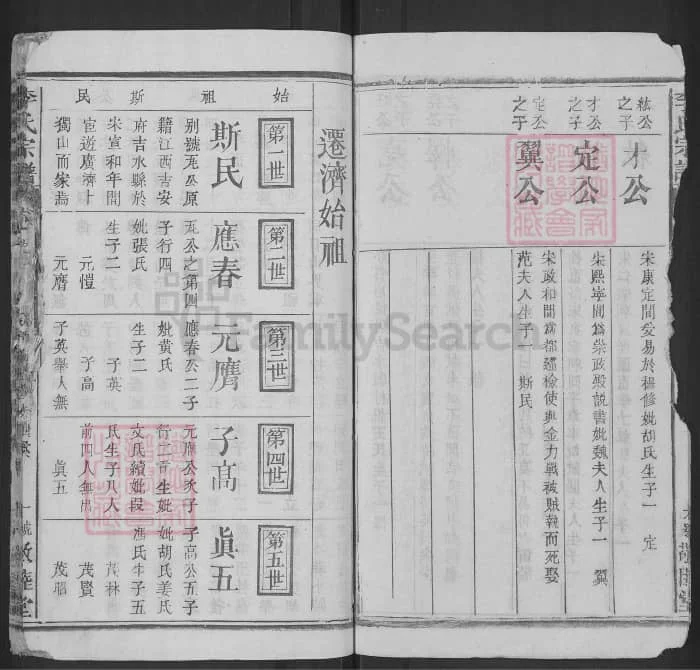 紘公之子
才公
宋康定間受易於穆修妣胡氏生子一 定
才公之子
定公
宋熙寧間爲崇政殿說書妣魏夫人生子一 翼
定公之子
翼公
宋政和間爲都巡檢使與金力戰被賊執而死娶
范夫人生子一 斯民
遷濟始祖
始祖斯民
第一世
斯民
别號
公原
籍江西吉安
府吉水縣於
宋宣和年間
宦遊廣濟十
獨山而家焉
第二世
應春
公之第四
子行四
妣張氏
生子二
元愷
元膺
第三世
元膺
應春公二子
妣黃氏
生子二
子英
子高
子英舉人無
第四世
子高
元膺公次子
行二
生妣
文氏續妣段
氏生子八大
前四人無
眞五
第五世
眞五
子高公五子
妣胡氏姜氏
馮氏生子五
茂林
茂賢
李氏宗譜
敦睦堂
FamilySearch